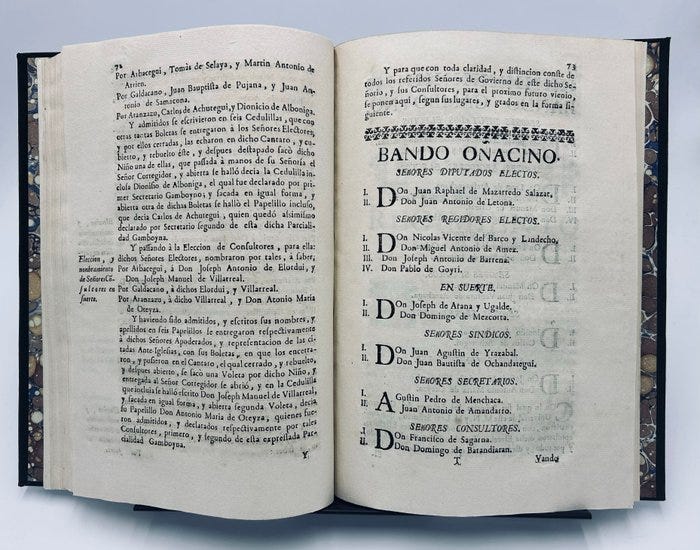 72
Por Arbacegui, Tomàs de Selaya, y Martin Antonio de
Arrien.
Por Galdacano, Juan Bauptista de Pujana, y Juan An-
tonio de Samacona.
Por Aranzazu, Carlos de Achutegui, y Dionicio de Alboniga.
Y admitidos se escrivieron en seis Cedulillas, que con
otras tantas Boletas se entregaron à los Señores Electores,
y por ellos cerradas, las echaron en dicho Cantaro, y cu-
bierto, y rebuelto èste, y despues destapado sacò dicho
Niño una de ellas, que passada à manos de su Señoria el
Señor Corregidor, y abierta se hallò decia la Cedulilla in-
clusa Dionisio de Alboniga, el qual fue declarado por pri-
mer Secretario Gamboyno; y sacada en igual forma, y
abierta otra de dichas Boletas se hallò el Papelillo incluso,
que decia Carlos de Achutegui, quien quedó assimismo
declarado por Secretario segundo de esta dicha Parciali-
dad Gamboyna.
Y passando à la Eleccion de Consultores, para ella:
Eleccion, y
nombramiento
de Señores Cõ-
sultores en
suerte.
dichos Señores Electores, nombraron por tales, à saber;
Por Arbacegui, à Don Joseph Antonio de Elordui, y
Don Joseph Manuel de Villarreal.
Por Galdacano, à dichos Elordui, y Villarreal.
Por Aranzazu, à dicho Villarreal, y Don Atonio Maria
de Oteyza.
Y haviendo sido admitidos, y escritos sus nombres, y
apellidos en seis Papelillos se entregaron respectivamente
à dichos Señores Apoderados, y representacion de las ci-
tadas Ante-Iglesias, con sus Boletas, en que los encerra-
ron, y pusieron en el Cantaro, el qual cerrado, y rebuelto,
y despues abierto, se sacò una Voleta por dicho Niño, y
entregada al Señor Corregidor se abriò, y en la Cedulilla
que incluia se hallò escrito Don Joseph Manuel de Villarreal,
y sacada en igual forma, y abierta segunda Voleta, decia
su Papelillo Don Antonio Maria de Oteyza; quienes fue-
ron admitidos, y declarados respectivamente por tales
Consultores, primero, y segundo de esta expressada Par-
cialidad Gamboyna.
Y
73
Y para que con toda claridad, y distincion conste de
todos los referidos Señores de Govierno de este dicho Se-
ñorio, y sus Consultores, para el proximo futuro vienio,
se ponen aqui, segun sus lugares, y grados en la forma si-
guiente.
BANDO OÑACINO.
SEÑORES DIPUTADOS ELECTOS.
I. Don Juan Raphael de Mazarredo Salazar,
II. Don Juan Antonio de Letona.
SEÑORES REGIDORES ELECTOS.
I. Don Nicolas Vicente del Barco y Landecho,
II. Don Miguel Antonio de Amez.
III. Don Joseph Antonio de Barrena.
IV. Don Pablo de Goyri.
EN SUERTE.
I. Don Joseph de Arana y Ugalde,
II. Don Domingo de Mezcorta.
SEÑORES SINDICOS.
I. Don Juan Agustin de Yrazabal.
II. Don Juan Bautista de Ochandategui.
SEÑORES SECRETARIOS.
I. Agustin Pedro de Menchaca.
II. Juan Antonio de Amandarro.
SEÑORES CONSULTORES.
I Don Francisco de Sagarna.
II. Don Domingo de Batandiaran.
T Vando